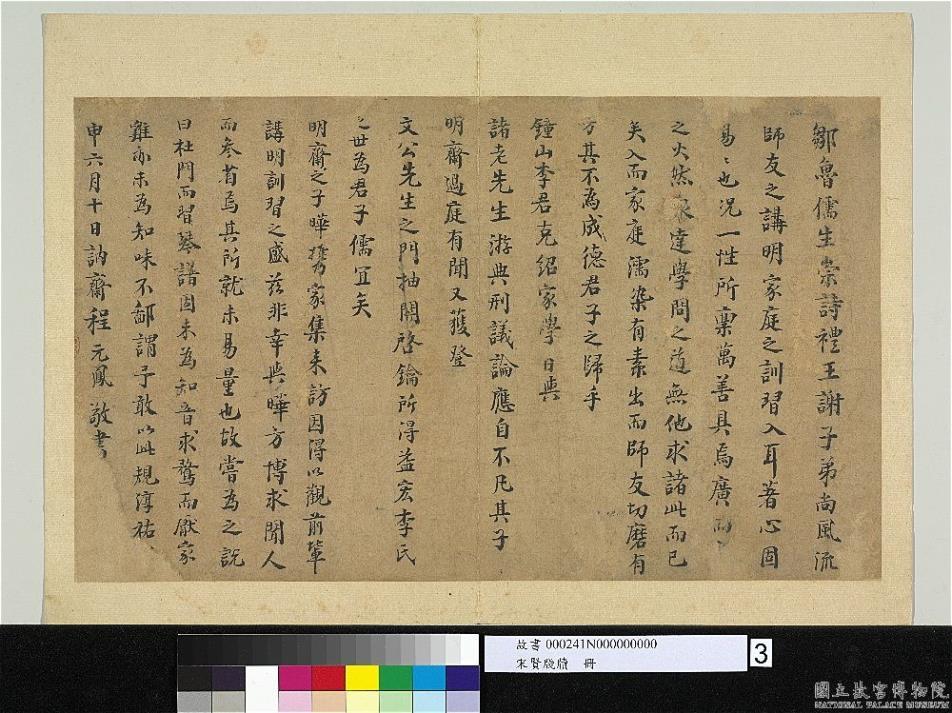 鄒魯儒生崇詩禮王謝子弟尚風流
師友之講明家庭之訓習入耳著心固
易〻也況一性所稟萬善具焉廣而
之火然泉達學問之道無他求諸此而已
矣入而家庭濡染有素出而師友切磨有
方其不為成德君子之歸乎
鐘山李君克紹家學日與
諸老先生游典刑議論應自不凡其子
明齋過庭有聞又獲登
文公先生之門抽關啓鑰所得益宏李氏
之世為君子儒宜矣
明齋之子曄攜家集來訪因得以觀前輩
講明訓習之盛茲非幸與曄方博求聞人
而參省焉其所就未易量也故嘗為之說
曰杜門而習琴譜固未為知音求鶩而厭家
雞亦未為知味不鄙謂予敢以此規淳祐
申六月十日訥齋程元鳳敬書
故書 000241N000000000
宋賢牋牘 冊
3
國立故宮博物院
NATIONAL PALACE MUSEUM